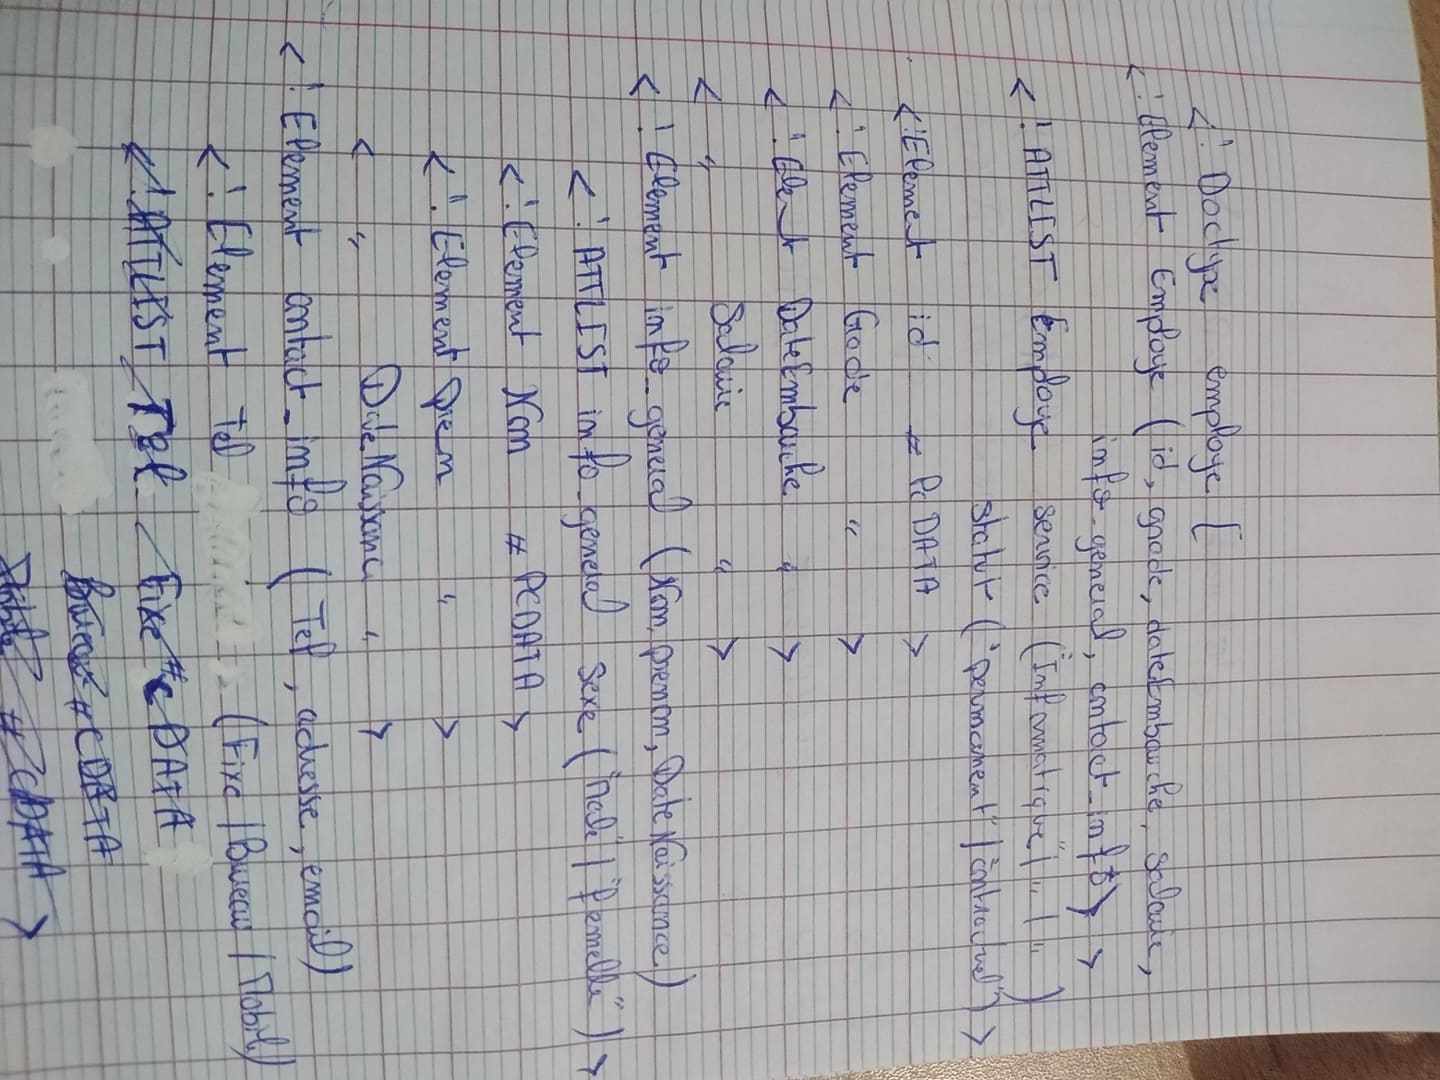 <! Doctype employe [
<! Element Employe (id, grade, dateEmbauche, salaire,
info_general, contact_info) >
<! ATTLIST Employe service ("Informatique" | " | " )
statut ("permanent" | "contractuel") >
<! Element id # PcDATA >
<! Element Grade " >
<! Element DateEmbauche " >
< " Salaire " >
<! Element info_general (Nom, prenom, DateNaissance)
<! ATTLIST info_general sexe ("Male" | "femelle") >
<! Element Nom # PCDATA >
<! Element prenom " >
< " DateNaissance " >
<! Element contact_info ( Tel, adresse, email)
<! Element Tel (Fixe | Bureau | Mobile)
<! ATTLIST Tel Fixe # CDATA
Bureau # CDATA
Mobile # CDATA >